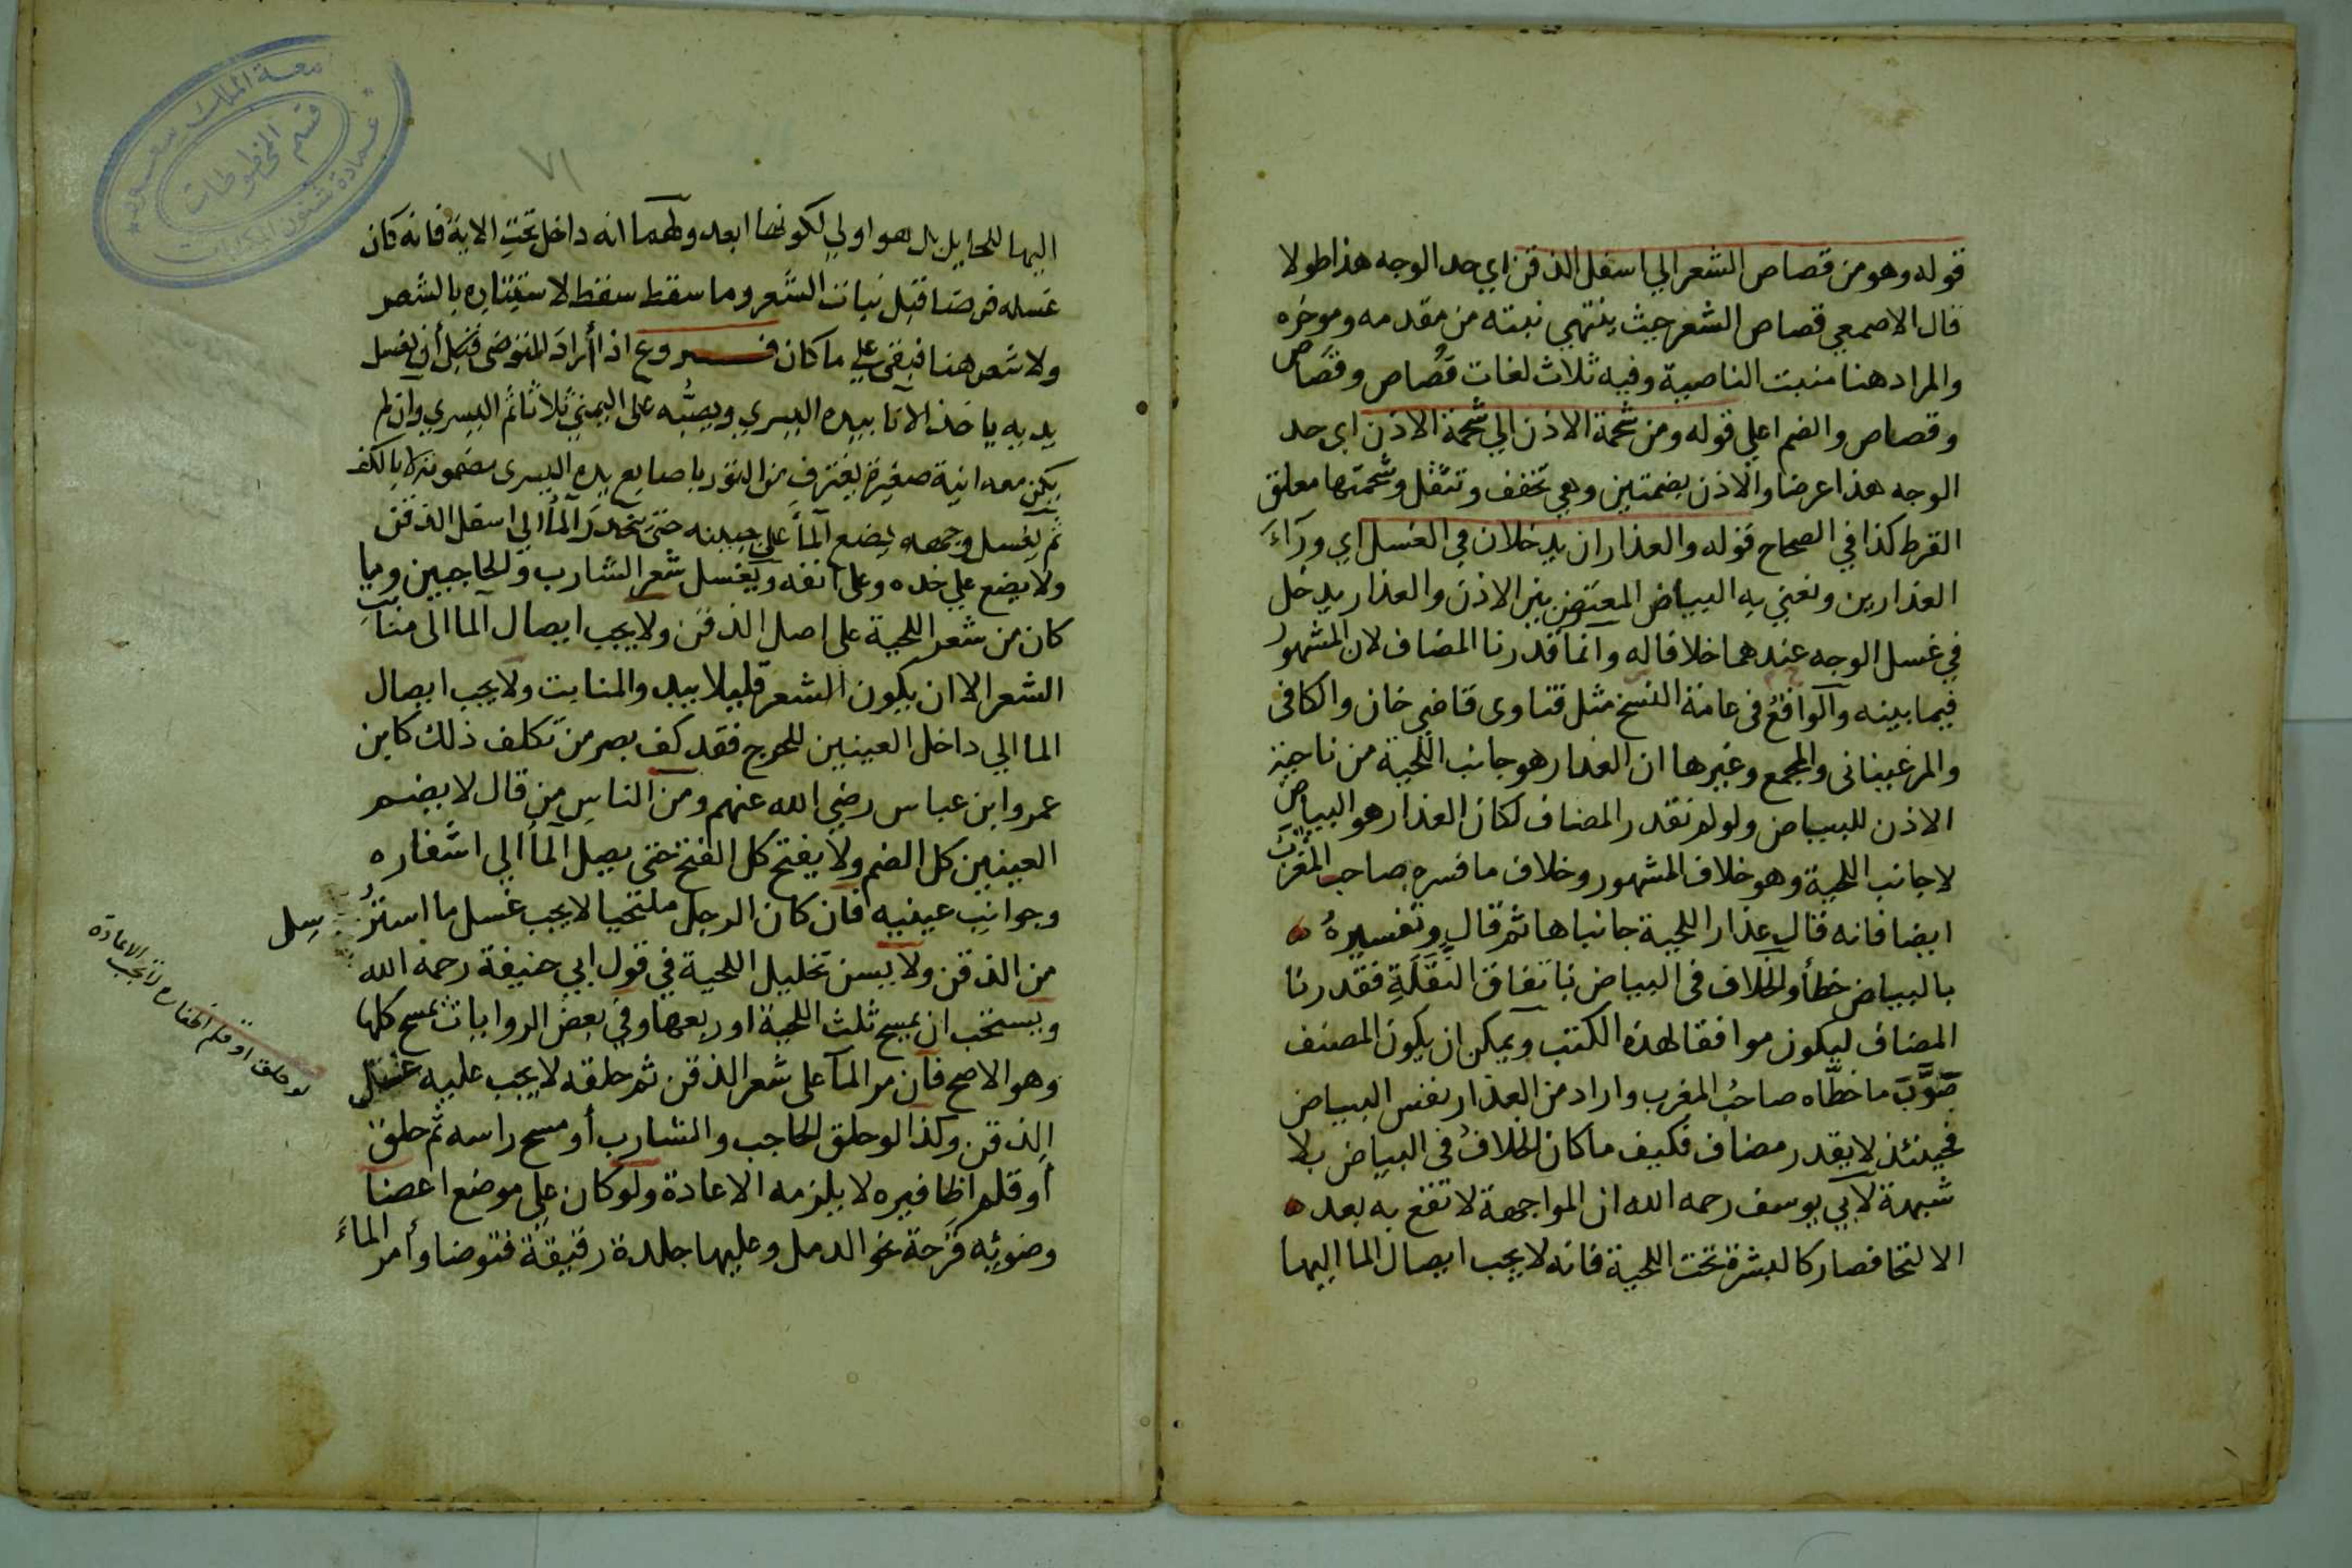 قوله وهو من قصاص الشعر الي اسفل الذقن اي حد الوجه هذا طولا
قال الاصمعي قصاص الشعر حيث ينتهي نبته من مقدمه وموخره
والمراد هنا منبت الناصية وفيه ثلاث لغات قُصاص وقصاص
وقصاص والضم اعلي قوله ومن شحمة الاذن الي شحمة الاذن اي حد
الوجه هذا عرضا والاذن بضمتين وهي تخفف وتثقل وشحمتها معلق
القرط كذا في الصحاح قوله والعذاران يدخلان في الغسل اي ورآء
العذارين ونعني به البياض المعترض بين الاذن والعذار يدخل
في غسل الوجه عندهما خلافا له وانما قدرنا المضاف لان المشهور
فيما بينه والواقعُ في عامة النسخ مثل فتاوى قاضي خان والكافى
والمرغينانى والمجمع وغيرها ان العذار هو جانب اللحية من ناحية
الاذن للبياض ولو لم نقدر المضاف لكان العذار هو البياض
لا جانب اللحية وهو خلاف المشهور وخلاف ما فسره صاحب المغرب
ايضا فانه قال عذارا اللحية جانباها ثم قال وتفسيرهُ
بالبياض خطأ والخلاف فى البياض باتفاق النَّقَلَةِ فقدرنا
المضاف ليكون موافقا لهذه الكتب ويمكن ان يكون المصنف
صَوَّبَ ما خطّاه صاحبُ المغرب واراد من العذار نفس البياض
فحينئذ لا يقدر مضاف فكيف ما كان الخلافُ فى البياض بلا
شبهة لابي يوسف رحمه الله ان المواجهة لا تقع به بعد
الالتحا فصار كالبشرة تحت اللحية فانه لا يجب ايصال الما اليها
٧١
اليها للحايل بل هو اولي لكونها ابعد ولهما انه داخل تحت الاية فانه كان
غسله فرضا قبل نبات الشعر وما سقط سقط لاستتاره بالشعر
ولا شعر هنا فبقي علي ما كان فروع اذا أراد المتوضي قبل أن يغسل
يديه ياخذ الانا بيده اليسري ويصبُّه على اليمني ثلاثا ثم اليسري وان لم
يكن معه انية صغيرة يغترف من التور باصابع يده اليسرى مضمومة لا بالكف
ثم يغسل وجهه يضع المأ على جبينه حتى ينحدر المأ الي اسفل الذقن
ولا يضع علي خده وعلى انفه ويغسل شعر الشارب والحاجبين وما
كان من شعر اللحية على اصل الذقن ولا يجب ايصال الما الى منابت
الشعر الا ان يكون الشعر قليلا يبد والمنابت ولا يجب ايصال
الما الي داخل العينين للحرج فقد كف بصر من تكلف ذلك كابن
عمر وابن عباس رضي الله عنهم ومن الناس من قال لا يضم
العينين كل الضم ولا يفتح كل الفتح حتى يصل المأ الي اشفاره
وجوانب عينيه فان كان الرجل ملتحيا لا يجب غسل ما استرسل
من الذقن ولا يسن تخليل اللحية في قول ابي حنيفة رحمه الله
ويستحب ان يمسح ثلث اللحية او ربعها وفي بعض الروايات يمسح كلها
وهو الاصح فان مر المآ على شعر الذقن ثم حلقه لا يجب عليه غسل
الذقن وكذا لو حلق الحاجب والشارب أو مسح راسه ثم حلق
أو قلم اظافيره لا يلزمه الاعادة ولو كان علي موضع اعضا
وضوئه قرحة نحو الدمل وعليها جلدة رقيقة فتوضا وأمر الماءَ
لو حلق او قلم
الاعادة
جامعة الملك سعود
عمادة شئون المكتبات
قسم المخطوطات